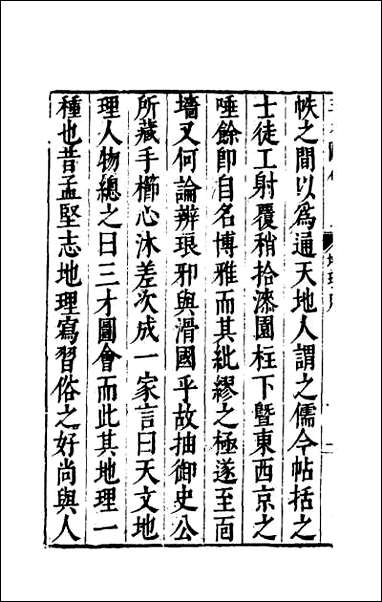 帙之間以為通天地人謂之儒今帖括之
士徒工射覆稍拾漆園柱下暨東西京之
唾餘即自名博雅而其紕繆之極遂至面
墻又何論辨琅邪與滑國乎故抽御史公
所藏手櫛心沐差次成一家言曰天文地
理人物總之曰三才圖會而此其地理一
種也昔孟堅志地理寫習俗之好尚與人